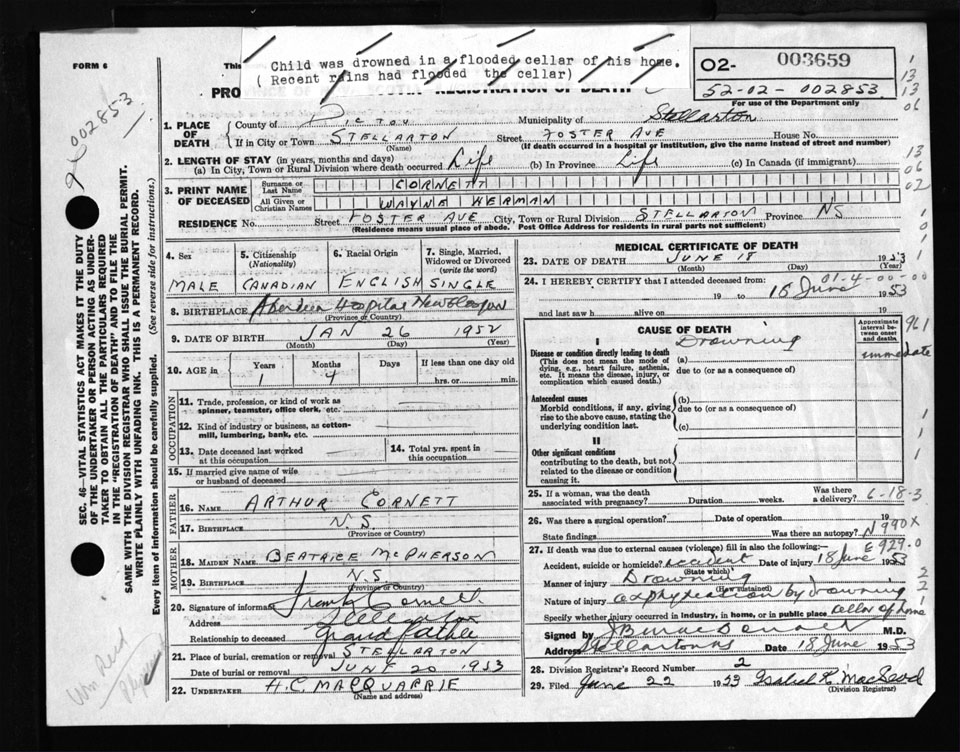 FORM 6
This
Child was drowned in a flooded cellar of his home.
( Recent rains had flooded the cellar)
PRO
REGISTRATION OF DEATH
02- 003659
52-02-002853
For use of the Department only
1. PLACE OF DEATH
County of PICTOU Municipality of Stellarton
If in City or Town STELLARTON Street FOSTER AVE House No.
(Name) (If death occurred in a hospital or institution, give the name instead of street and number)
2. LENGTH OF STAY (in years, months and days)
(a) In City, Town or Rural Division where death occurred Life (b) In Province Life (c) In Canada (if immigrant)
3. PRINT NAME OF DECEASED
Surname or Last Name CORNETT
All Given or Christian Names WAYNE HERMAN
RESIDENCE No. Street FOSTER AVE City, Town or Rural Division STELLARTON Province NS
(Residence means usual place of abode. Post Office Address for residents in rural parts not sufficient)
4. Sex
MALE
5. Citizenship (Nationality)
CANADIAN
6. Racial Origin
ENGLISH
7. Single, Married, Widowed or Divorced (write the word)
SINGLE
8. BIRTHPLACE Aberdeen Hospital New Glasgow
(Province or Country)
9. DATE OF BIRTH JAN 26 1952
(Month) (Day) (Year)
10. AGE in Years Months Days If less than one day old
1 4 hrs. or min.
OCCUPATION
11. Trade, profession, or kind of work as spinner, teamster, office clerk, etc.
12. Kind of industry or business, as cotton-mill, lumbering, bank, etc.
13. Date deceased last worked at this occupation
14. Total yrs. spent in this occupation
15. If married give name of wife or husband of deceased
FATHER
16. NAME ARTHUR CORNETT
17. BIRTHPLACE N.S.
(Province or Country)
MOTHER
18. MAIDEN NAME BEATRICE McPHERSON
19. BIRTHPLACE N.S
(Province or Country)
20. Signature of informant Frank Cornett
Address Stellarton
Relationship to deceased Grand father
21. Place of burial, cremation or removal STELLARTON
Date of burial or removal JUNE 20 1953
22. UNDERTAKER H.C. MACQUARRIE
(Name and address)
MEDICAL CERTIFICATE OF DEATH
23. DATE OF DEATH JUNE 18 1953
(Month) (Day) (Year)
01-4-00-00
24. I HEREBY CERTIFY that I attended deceased from:
19 to 18 June 1953
and last saw h alive on 19
CAUSE OF DEATH
Approximate interval between onset and death.
I
Disease or condition directly leading to death
(This does not mean the mode of dying, e.g., heart failure, asthenia, etc. It means the disease, injury, or complication which caused death.)
(a) Drowning immediate
due to (or as a consequence of)
Antecedent causes
Morbid conditions, if any, giving rise to the above cause, stating the underlying condition last.
(b)
due to (or as a consequence of)
(c)
II
Other significant conditions
contributing to the death, but not related to the disease or condition causing it.
25. If a woman, was the death associated with pregnancy? Duration weeks. Was there a delivery?
6-18-3
26. Was there a surgical operation? Date of operation 19
State findings Was there an autopsy?
N990X
27. If death was due to external causes (violence) fill in also the following:—
E929.0
Accident, suicide or homicide? accident Date of injury 18 June 1953
(State which)
Manner of injury Drowning
(How sustained)
Nature of injury asphyxiation by drowning
Specify whether injury occurred in industry, in home, or in public place cellar of home
Signed by J B MacDonald M.D.
Address Stellarton NS Date 18 June 1953
28. Division Registrar's Record Number 2
29. Filed June 22 1953 Isabel R. MacLeod
(Division Registrar)
SEC. 46—VITAL STATISTICS ACT MAKES IT THE DUTY
OF THE UNDERTAKER OR PERSON ACTING AS UNDER-
TAKER TO OBTAIN ALL THE PARTICULARS REQUIRED
IN THE "REGISTRATION OF DEATH" AND TO FILE THE
SAME WITH THE DIVISION REGISTRAR WHO SHALL ISSUE THE BURIAL PERMIT.
WRITE PLAINLY WITH UNFADING INK. THIS IS A PERMANENT RECORD.
Every item of information should be carefully supplied. (See reverse side for instructions.)
002853
1
13
13
06
13
06
02
961